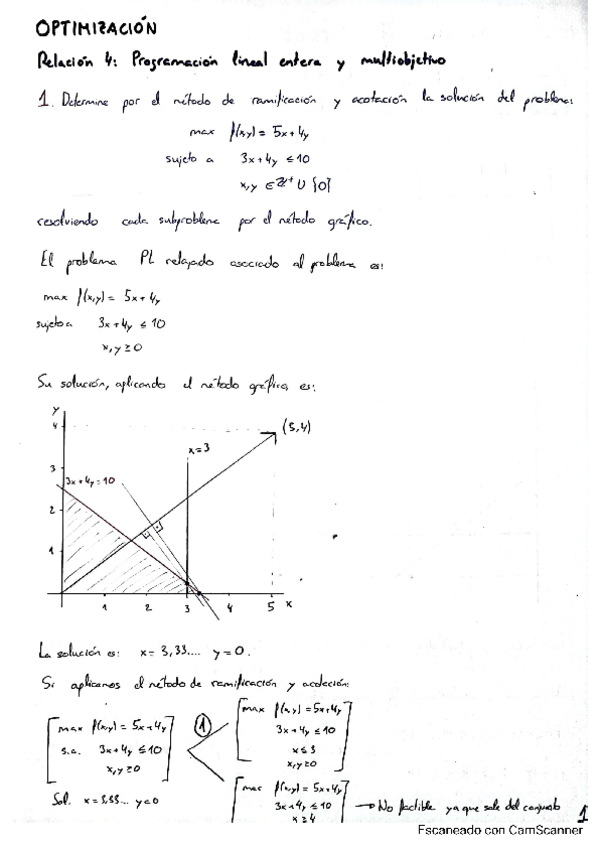 OPTIMIZACIÓN
Relación 4: Programación lineal entera y multiobjetivo
1. Determine por el método de ramificación y acotación la solución del problema:
max f(x,y) = 5x+4y
sujeto a 3x+4y ≤ 10
x,y ∈ Z⁺ ∪ {0}
resolviendo cada subproblema por el método gráfico.
El problema PL relajado asociado al problema es:
max f(x,y) = 5x+4y
sujeto a 3x+4y ≤ 10
x,y ≥ 0
Su solución, aplicando el método gráfico, es:
y
4
(5,4)
x=3
3
3x+4y=10
2
1
1 2 3 4 5 x
La solución es: x = 3,33.... y=0.
Si aplicamos el método de ramificación y acotación:
max f(x,y) = 5x+4y
3x+4y ≤ 10
x ≤ 3
x,y ≥ 0
max f(x,y) = 5x+4y
s.a. 3x+4y ≤ 10
x,y ≥ 0
1
Sol. x=3,33... y=0
max f(x,y) = 5x+4y
3x+4y ≤ 10
x ≥ 4
→ No factible ya que sale del conjunto
1
Escaneado con CamScanner